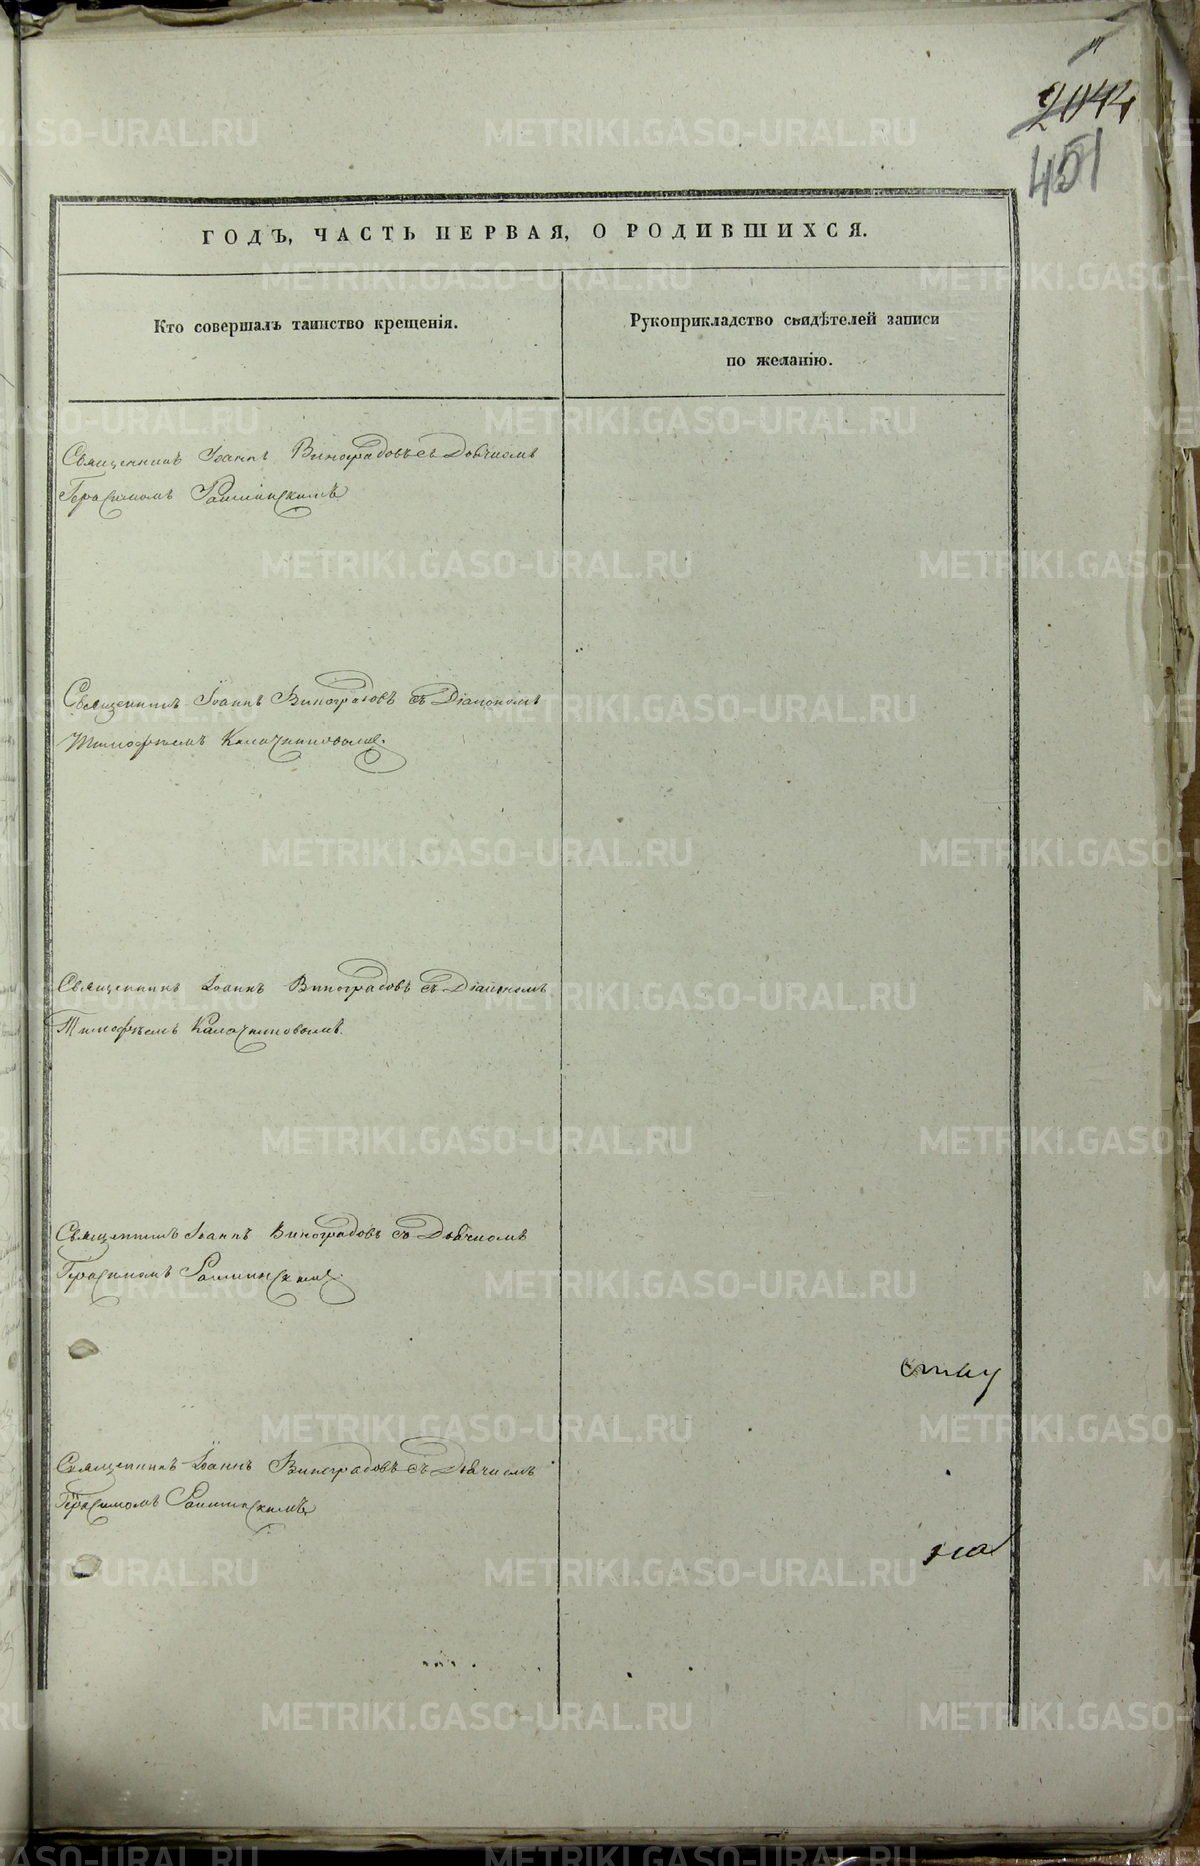 2044
451
ГОДЪ, ЧАСТЬ ПЕРВАЯ, О РОДИВШИХСЯ.
Кто совершалъ таинство крещенія.
Рукоприкладство свидѣтелей записи
по желанію.
Священникъ Іоаннъ Виноградовъ съ Дьячкомъ
Герасимомъ
Священникъ Іоаннъ Виноградовъ съ Діакономъ
Тимофѣемъ Калачниковымъ.
Священникъ Іоаннъ Виноградовъ съ Діакономъ
Тимофѣемъ Калачниковымъ.
Священникъ Іоаннъ Виноградовъ съ Дьячкомъ
Герасимомъ
ству
Священникъ Іоаннъ Виноградовъ съ Дьячкомъ
Герасимомъ
METRIKI.GASO-URAL.RU